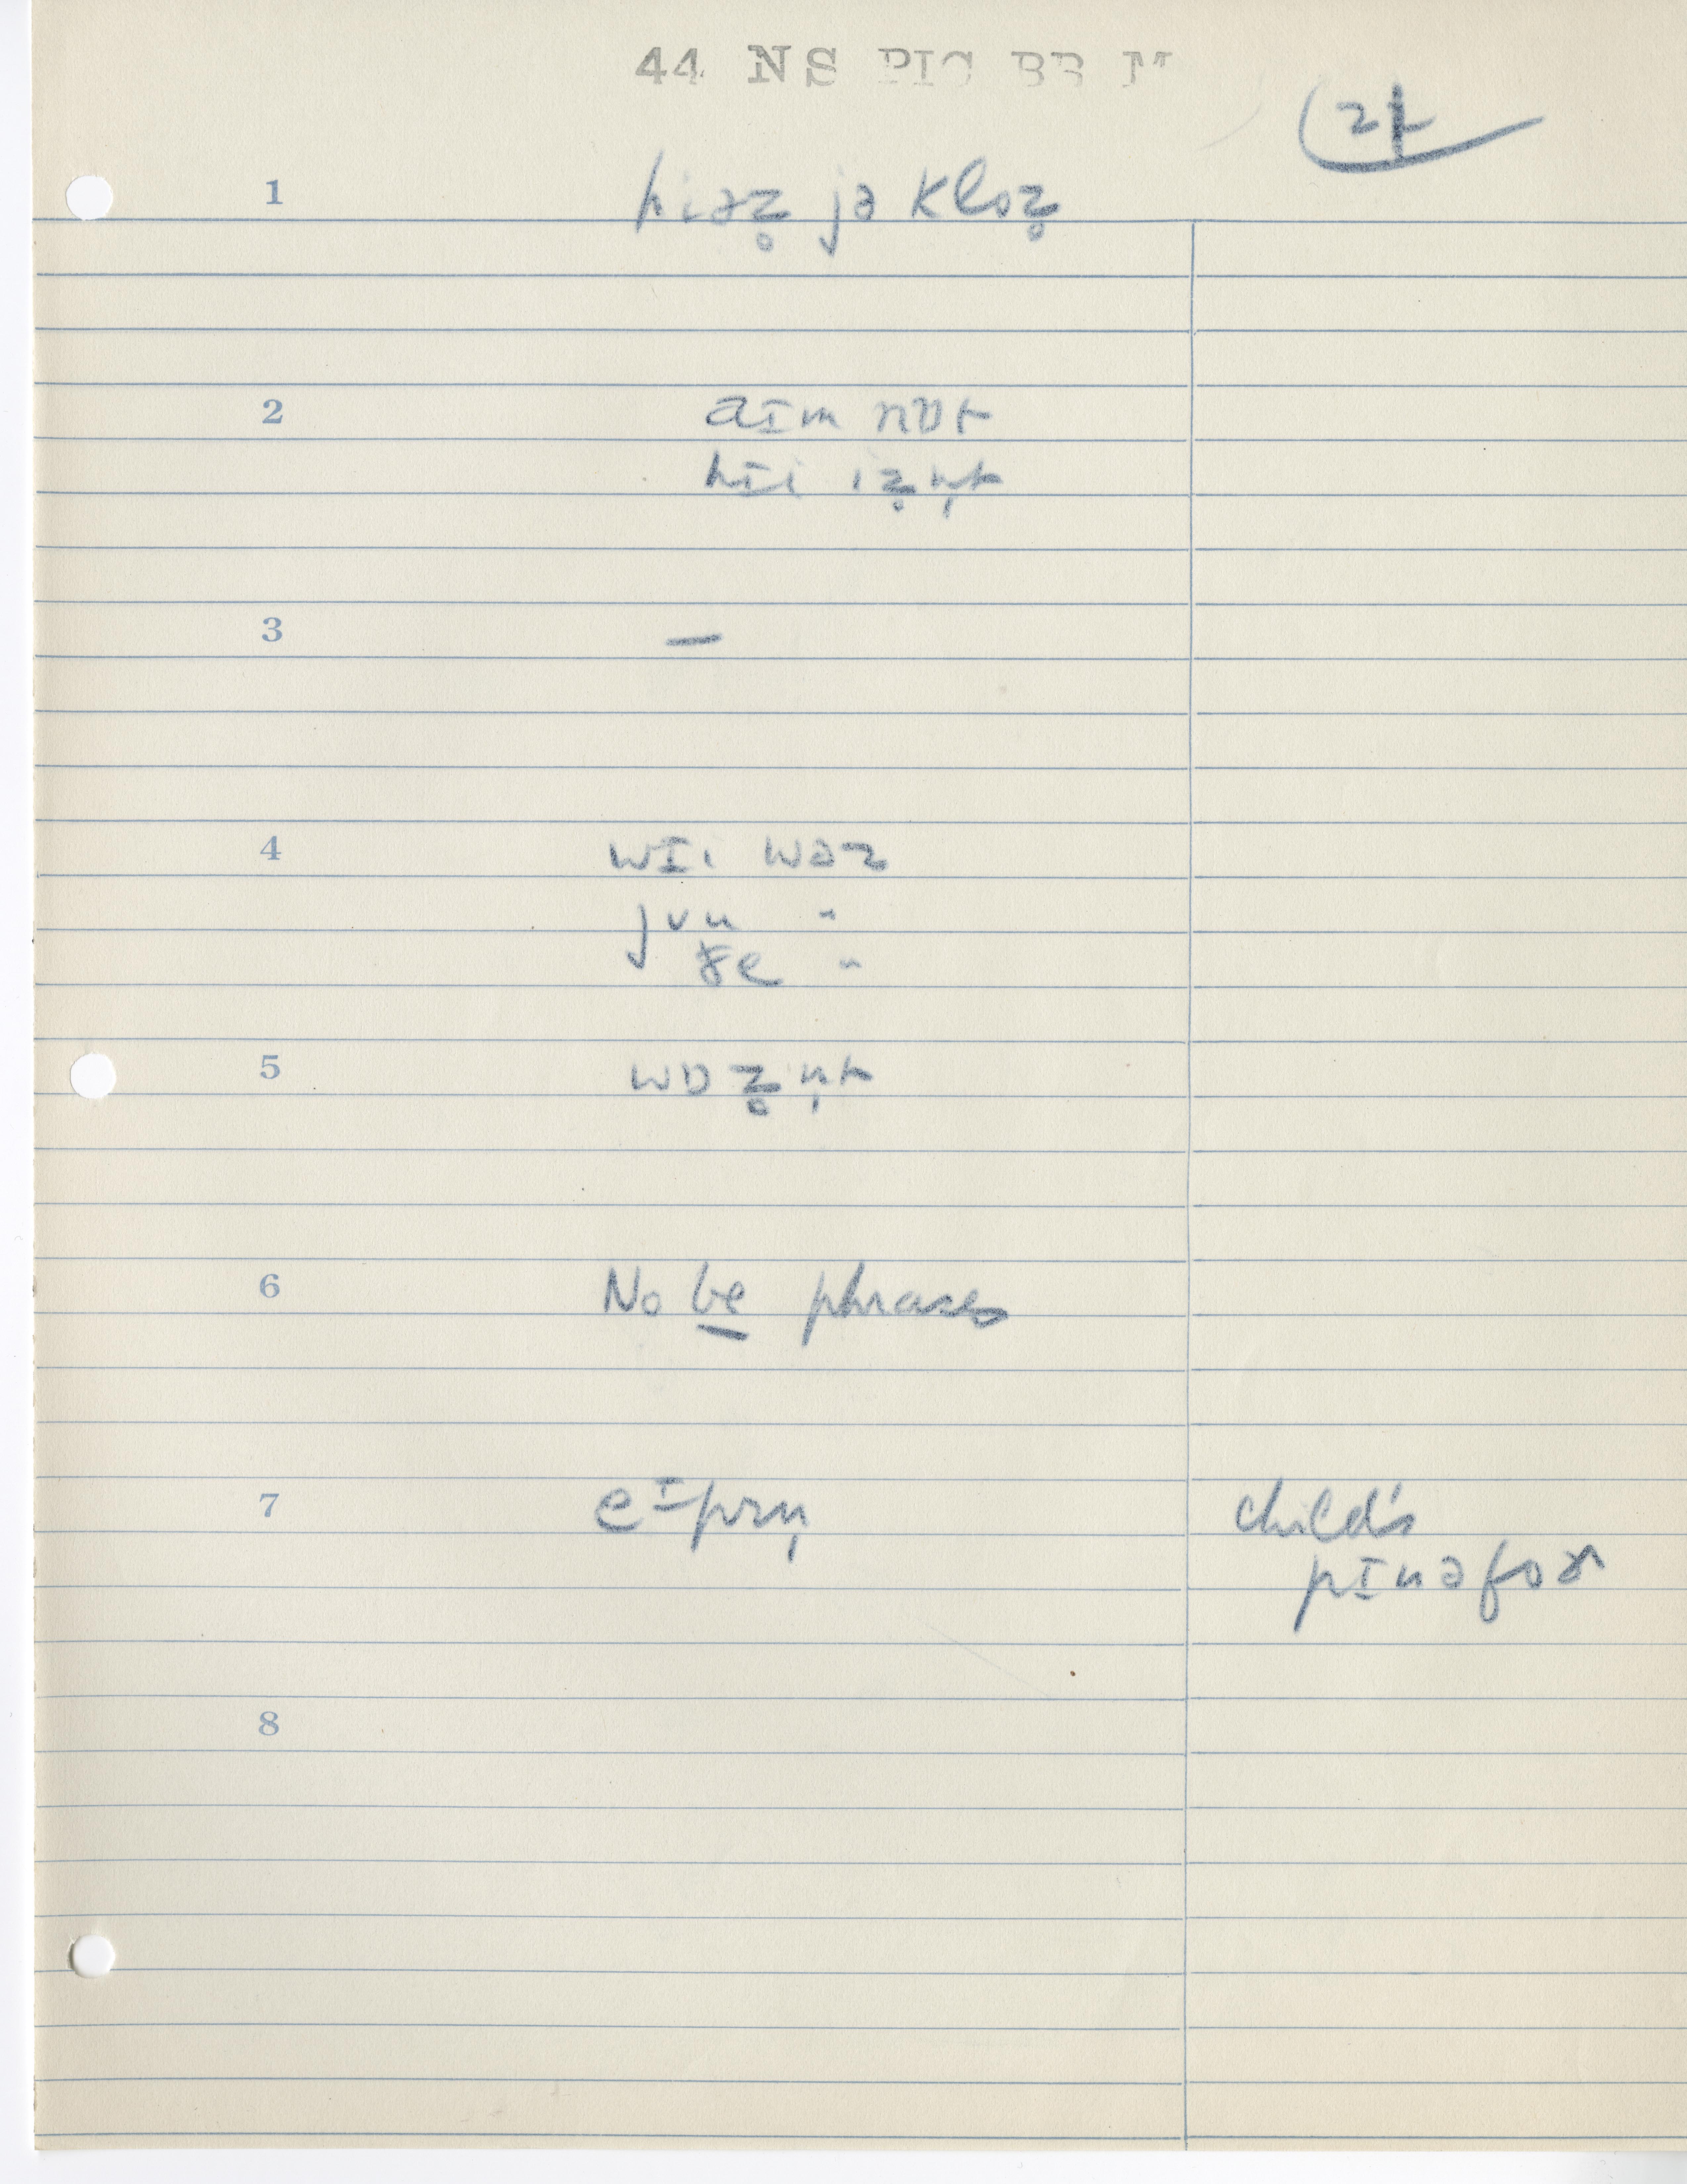 44 NS PIC BB M
21
1 hiəz̥ jə kloz̥
2 aɪm nɒt
hɪi iz̥n̩t
3 —
4 wɪi wəz
jʊu "
ðe "
5 wɒz̥n̩t
6 No be phrases
7 eɪprn̩ child's
pɪnəfoɚ
8